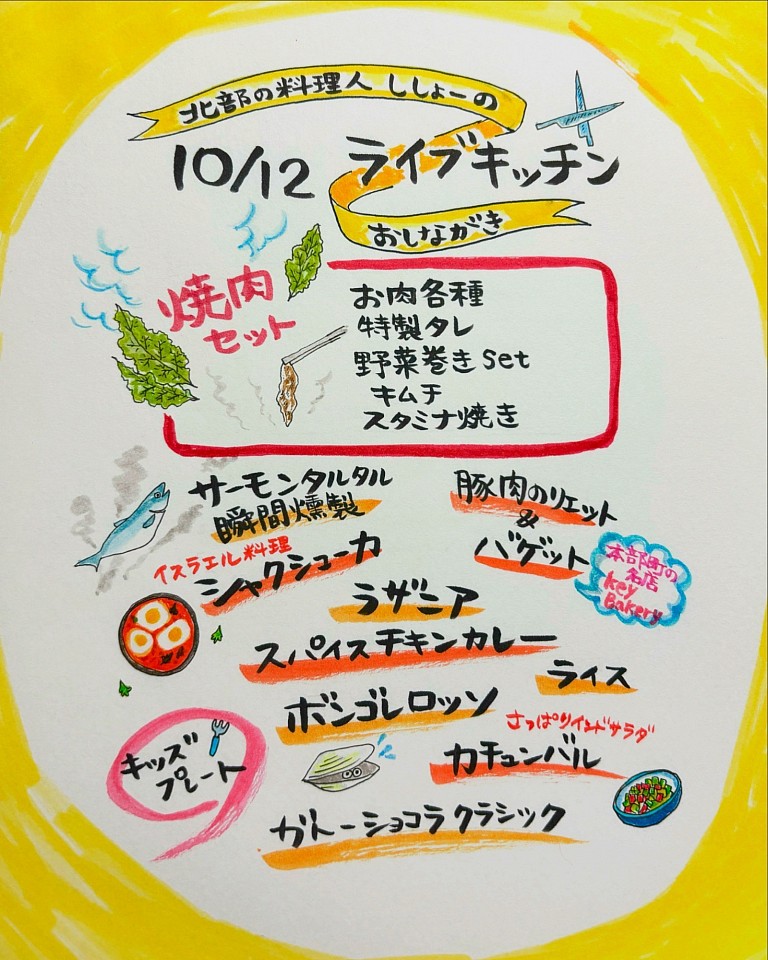 北部の料理人 ししょーの
10/12 ライブキッチン
おしながき
焼肉
セット
お肉各種
特製タレ
野菜巻きset
キムチ
スタミナ焼き
サーモンタルタル
瞬間燻製
豚肉のリエット
&
バゲット
本部町の
名店
key
Bakery
イスラエル料理
シャクシューカ
ラザニア
スパイスチキンカレー
ライス
ボンゴレロッソ
さっぱりインドサラダ
カチュンバル
キッズ
プレート
ガトーショコラクラシック